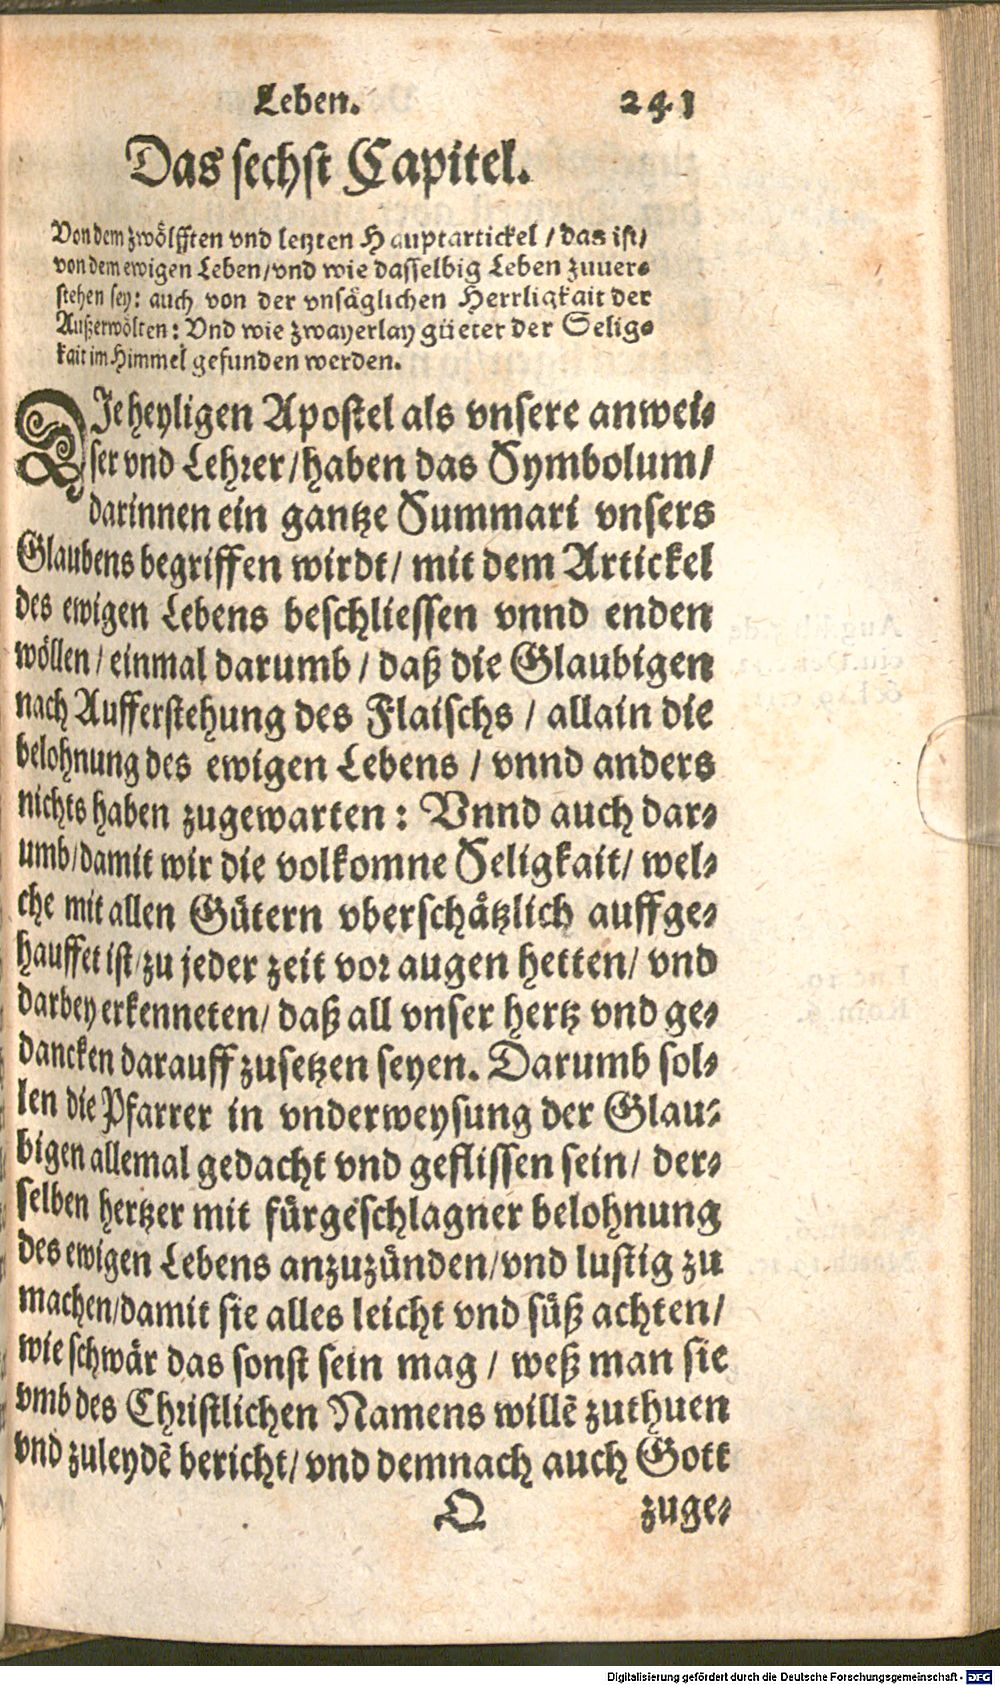 Leben. 241
Das sechst Capitel.
Von dem zwölfften vnd letzten Hauptartickel / das ist/
von dem ewigen Leben/vnd wie dasselbig Leben zuuer-
stehen sey: auch von der vnsäglichen Herrligkait der
Außerwölten: Vnd wie zwayerlay güeter der Selig-
kait im Himmel gefunden werden.
DJe heyligen Apostel als vnsere anwei-
ser vnd Lehrer/haben das Symbolum/
darinnen ein gantze Summari vnsers
Glaubens begriffen wirdt/ mit dem Artickel
des ewigen Lebens beschliessen vnnd enden
wöllen/ einmal darumb / daß die Glaubigen
nach Aufferstehung des Flaischs / allain die
belohnung des ewigen Lebens / vnnd anders
nichts haben zugewarten: Vnnd auch dar-
umb/damit wir die volkomne Seligkait/ wel-
che mit allen Gütern vberschätzlich auffge-
hauffet ist/zu jeder zeit vor augen hetten/ vnd
darbey erkenneten/ daß all vnser hertz vnd ge-
dancken darauff zusetzen seyen. Darumb sol-
len die Pfarrer in vnderweysung der Glau-
bigen allemal gedacht vnd geflissen sein/ der-
selben hertzer mit fürgeschlagner belohnung
des ewigen Lebens anzuzünden/vnd lustig zu
machen/damit sie alles leicht vnd süß achten/
wie schwär das sonst sein mag / weß man sie
vmb des Christlichen Namens willē zuthuen
vnd zuleydē bericht/ vnd demnach auch Gott
Q zuge-
Digitalisierung gefördert durch die Deutsche Forschungsgemeinschaft - DFG